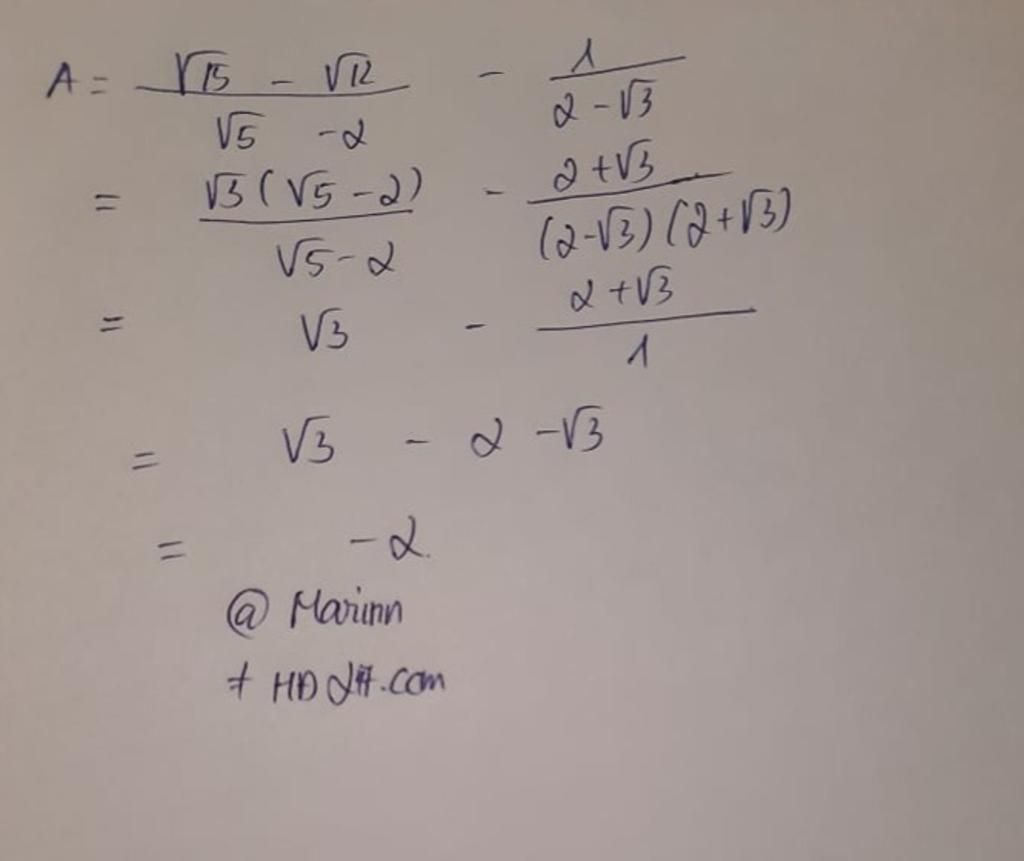 A = (√15 - √12)/(√5 - 2) - 1/(2 - √3)
= √3(√5 - 2)/(√5 - 2) - (2 + √3)/((2 - √3)(2 + √3))
= √3 - (2 + √3)/1
= √3 - 2 - √3
= -2.
@ Marinn
≠ HD24.com